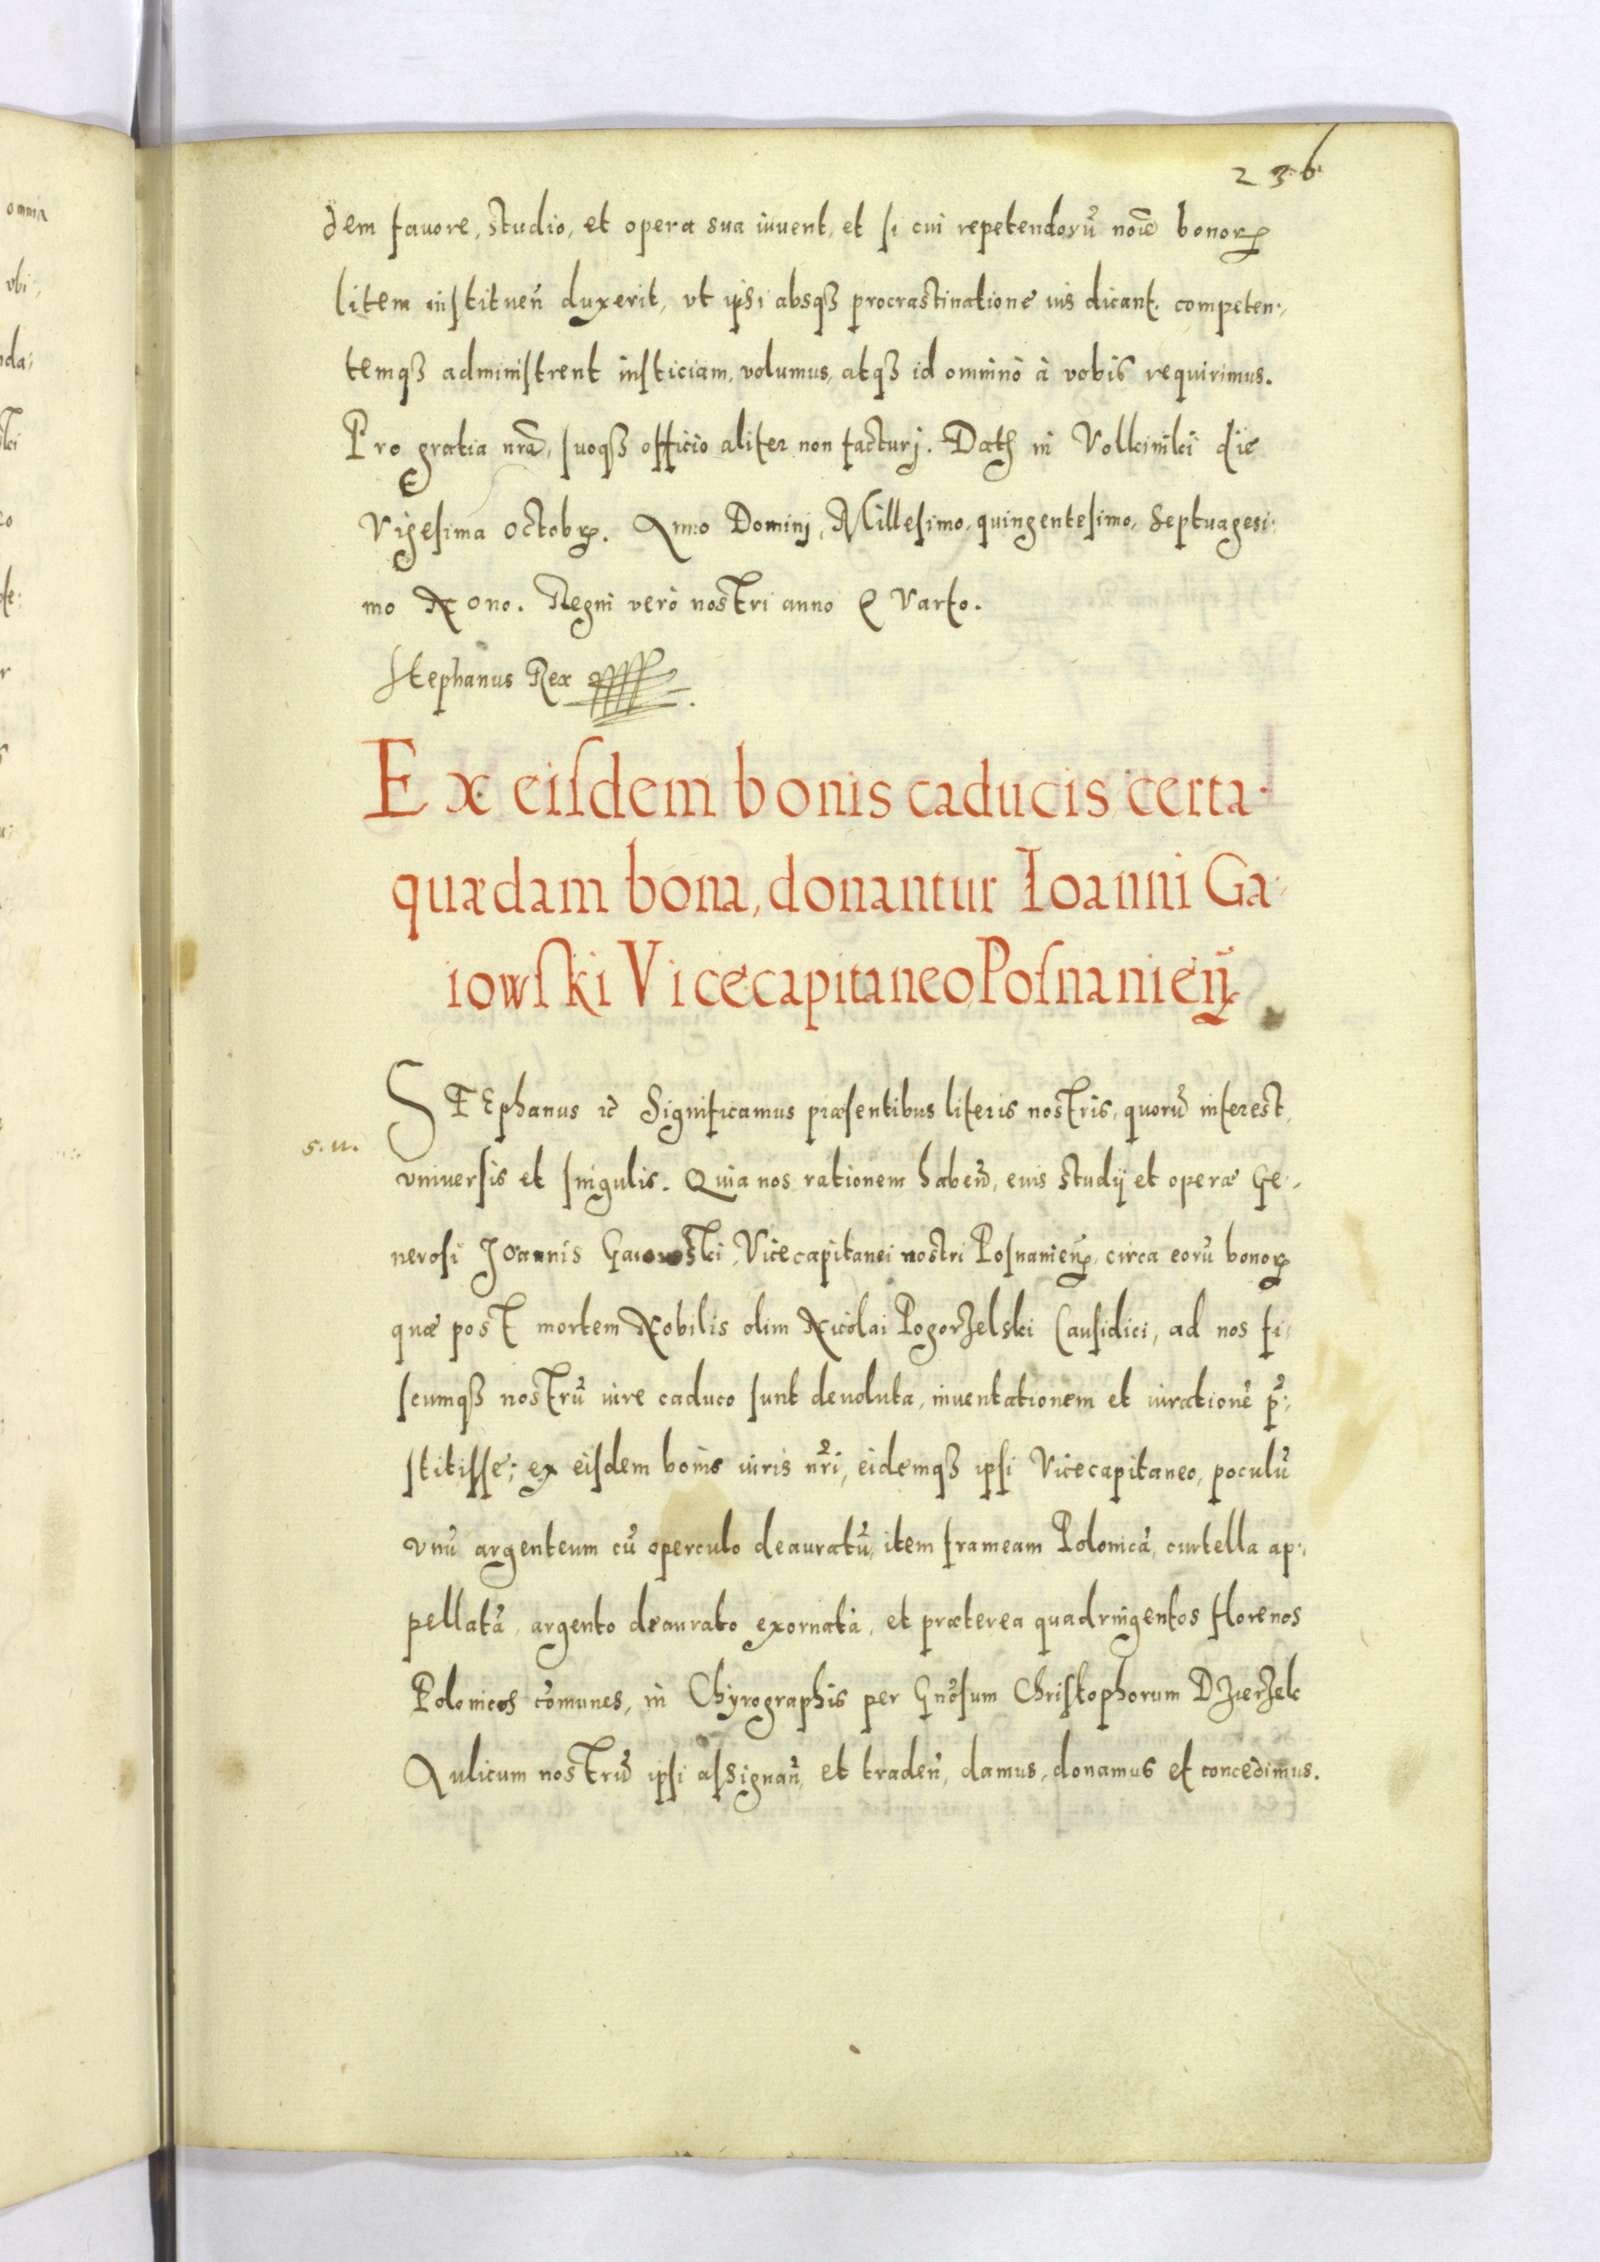 236
dem fauore, studio, et opera sua iuuent, et si cui repetendorũ noie bonorꝝ
litem instituen̄ duxerit, vt ipsi absqꝫ procrastinatione ius dicant. competen-
temqꝫ administrent iusticiam, volumus, atqꝫ id omnino à vobis requirimus.
Pro gratia nr̃a, suoqꝫ officio aliter non facturj. Datꝫ in Volkiniki die
Vigesima Octobrꝭ. Anno Dominj, Millesimo, quingentesimo, Septuagesi-
mo Nono. Regni verò nostri anno Quarto.
Stephanus Rex
Ex eiſdem bonis caducis certa
quædam bona, donantur Ioanni Ga-
iowſki Vicecapitaneo Poſnanien̄
STEphanus ꝛc̃ Significamus præsentibus literis nostris, quorũ interest,
s. u.
vniuersis et singulis. Quia nos rationem haben̄, eius studij et operæ Ge-
nerosi Joannis Gaiowski, Vicecapitanei nostri Posnanien̄, circa eorũ bonorꝝ
quæ post mortem Nobilis olim Nicolai Pogorzelski Causidici, ad nos fi-
scumqꝫ nostrũ iure caduco sunt deuoluta, inuentationem et iurationẽ p̃-
stitisse; ex eisdem bonis iuris nr̃i, eidemqꝫ ipsi Vicecapitaneo, poculũ
vnũ argenteum cũ operculo deauratũ, item frameam Polonicã, curtella ap-
pellatã, argento deaurato exornatã, et præterea quadringentos florenos
Polonicos cõmunes, in Chyrographis per Gnõsum Christophorum Dzierzek
Aulicum nostrũ ipsi assignan̄, et traden̄, damus, donamus et concedimus.